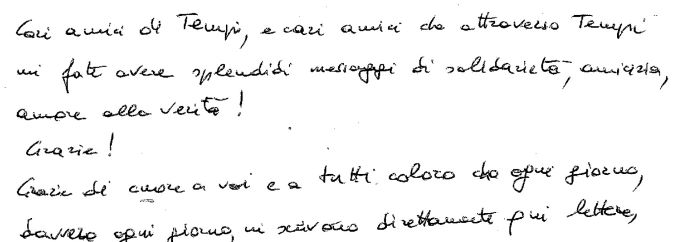 Cari amici di Tempi, e cari amici che attraverso Tempi
mi fate avere splendidi messaggi di solidarietà, amicizia,
amore alla verità!
Grazie!
Grazie di cuore a voi e a tutti coloro che ogni giorno,
davvero ogni giorno, mi scrivono direttamente qui lettere,